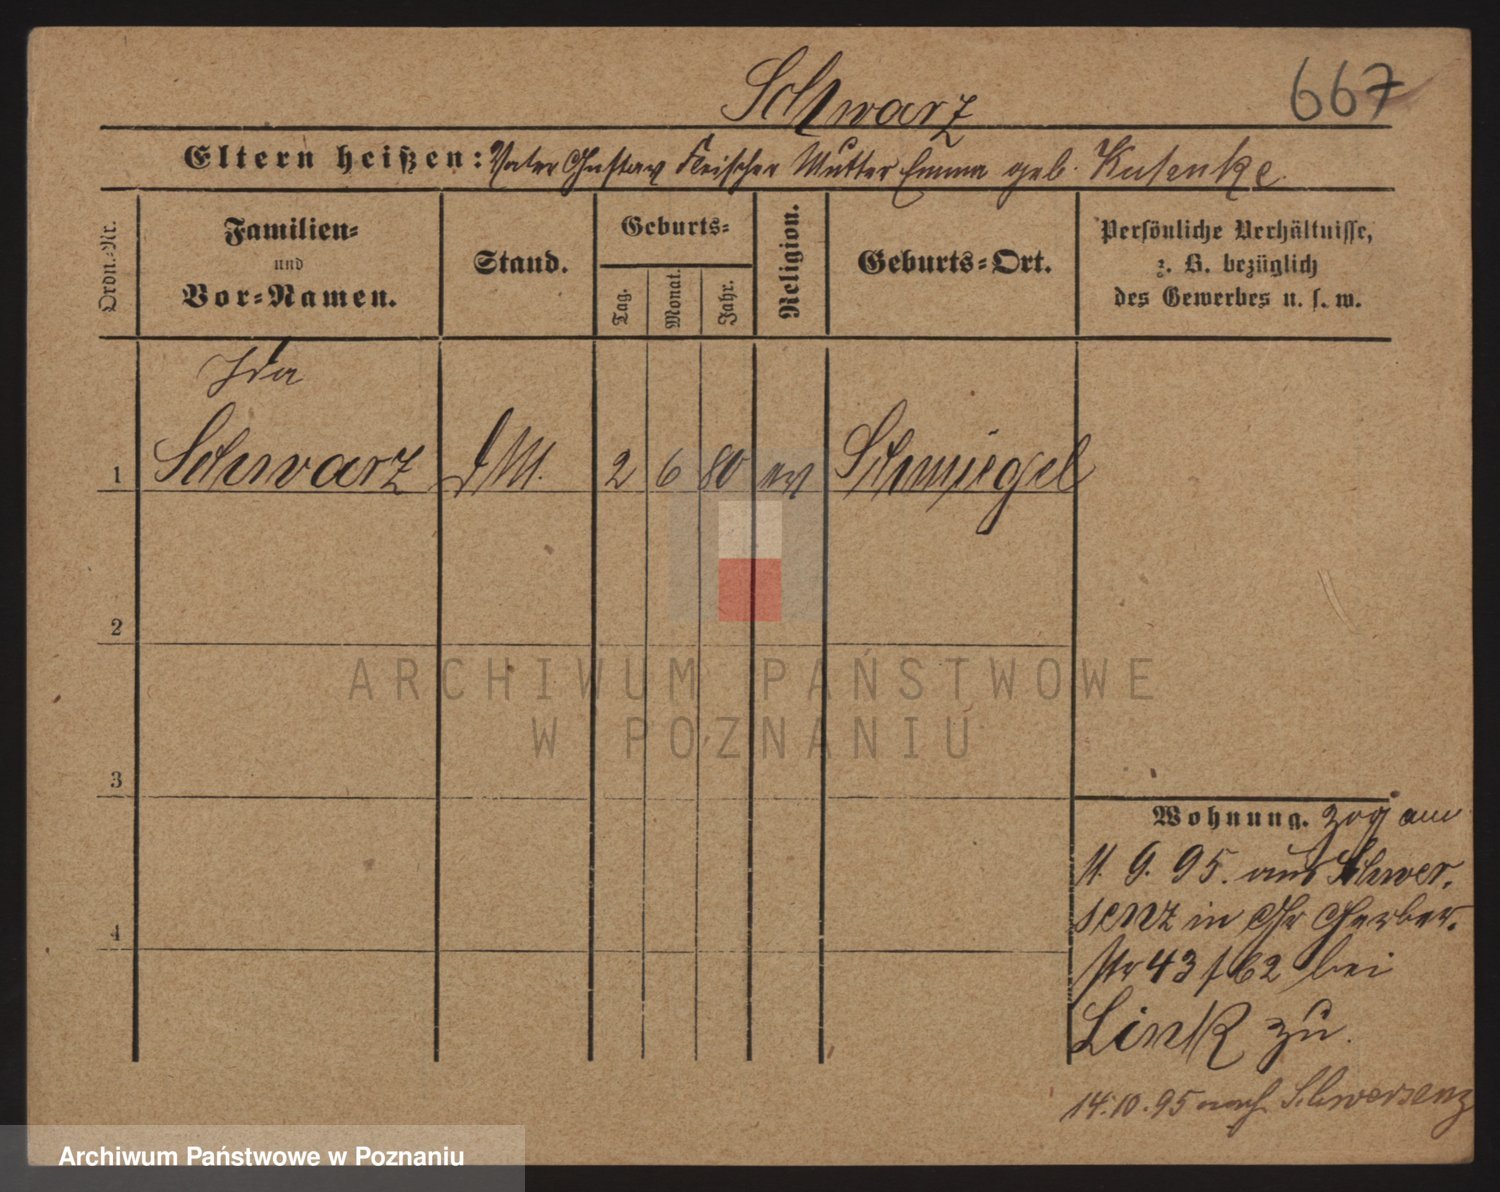 Schwarz
667
Eltern heißen: Vater Gustav Fleischer Mutter Emma geb. Kusenke
Ordn.-Nr.
Familien-
und
Vor-Namen.
Stand.
Geburts-
Tag.
Monat.
Jahr.
Religion.
Geburts-Ort.
Persönliche Verhältnisse,
z. B. bezüglich
des Gewerbes u. s. w.
Ida
1 Schwarz d M. 2 6 80 ev Schmiegel
2
ARCHIWUM PAŃSTWOWE
W POZNANIU
3
Wohnung. zog am
11. 9. 95. aus Schwer.
senz in Gr Gerber.
str 43 f 62 bei
4
Link zu.
14.10.95 nach Schwersenz
Archiwum Państwowe w Poznaniu